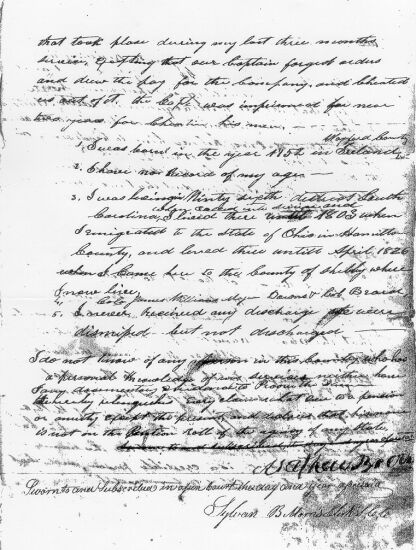 that took place during my last three months
service, Excepting that our Captain forged orders
and drew the pay for the Company, and Cheated
us out of it. the Capt. was imprisoned for near
two years for Cheating his men
Wexford County
1. I was born in the year 1752 in Ireland
2. I have no Record of my age
3. I was living in Ninty Sixth district South
Carolina, I lived there until 1803 when
I migrated to the State of Ohio in Hamilton
County, and lived there until April 1826
when I Came here to the County of Shelby where
I now live,
Cols. James Williams
5. I never received any discharge we were
dismissed but not discharged
I do not know of any person in this County who has
a personal knowledge of my services neither have
I any documentary evidence to prove the same
hereby relinquish every claim whatever to a pension
or annuity except the present and declare that his name
is not on the Pention roll of the agency of any State
Mathew Brown
Sworn to and Subscribed in open Court the day and year aforesaid
Sylvan B. Morris Clerk